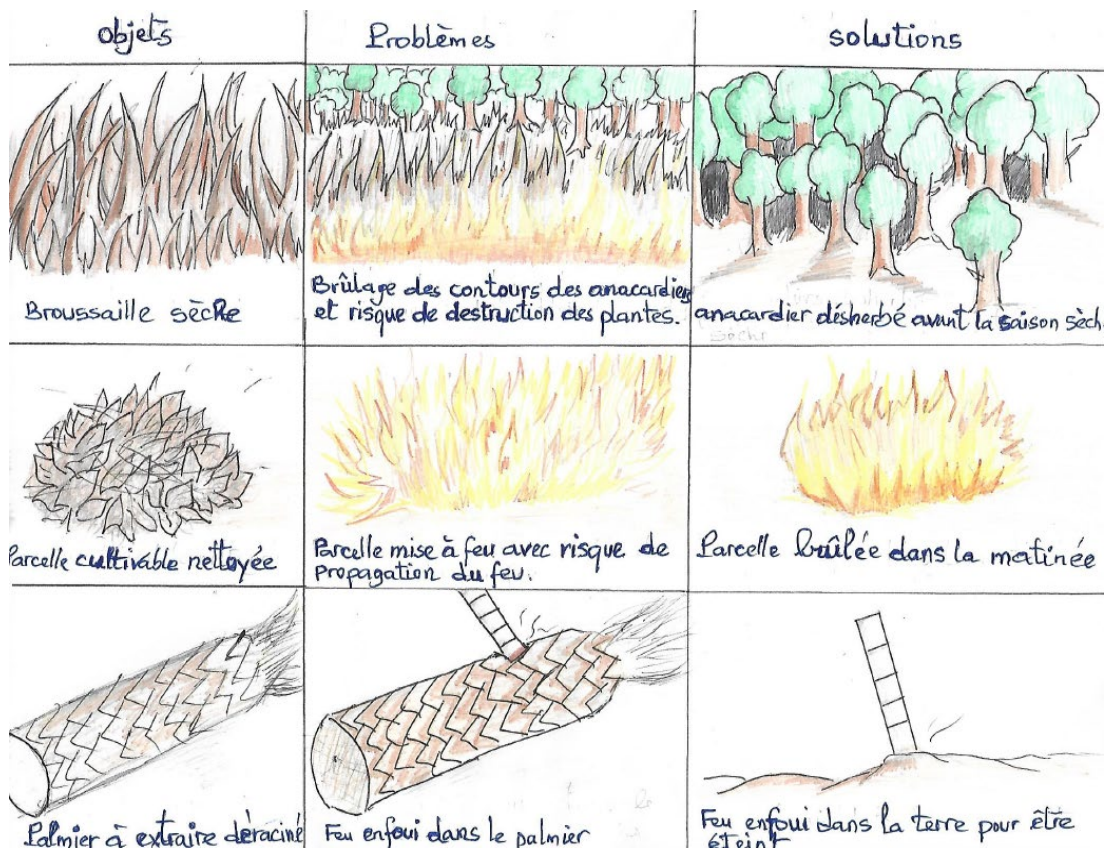 objets
Problèmes
solutions
Broussaille sèche
Brûlage des contours des anacardiers
et risque de destruction des plantes.
anacardier désherbé avant la saison sèch
sèche
Parcelle cultivable nettoyée
Parcelle mise à feu avec risque de
propagation du feu.
Parcelle brûlée dans la matinée
Palmier à extraire déraciné
Feu enfoui dans le palmier
Feu enfoui dans la terre pour être
éteint